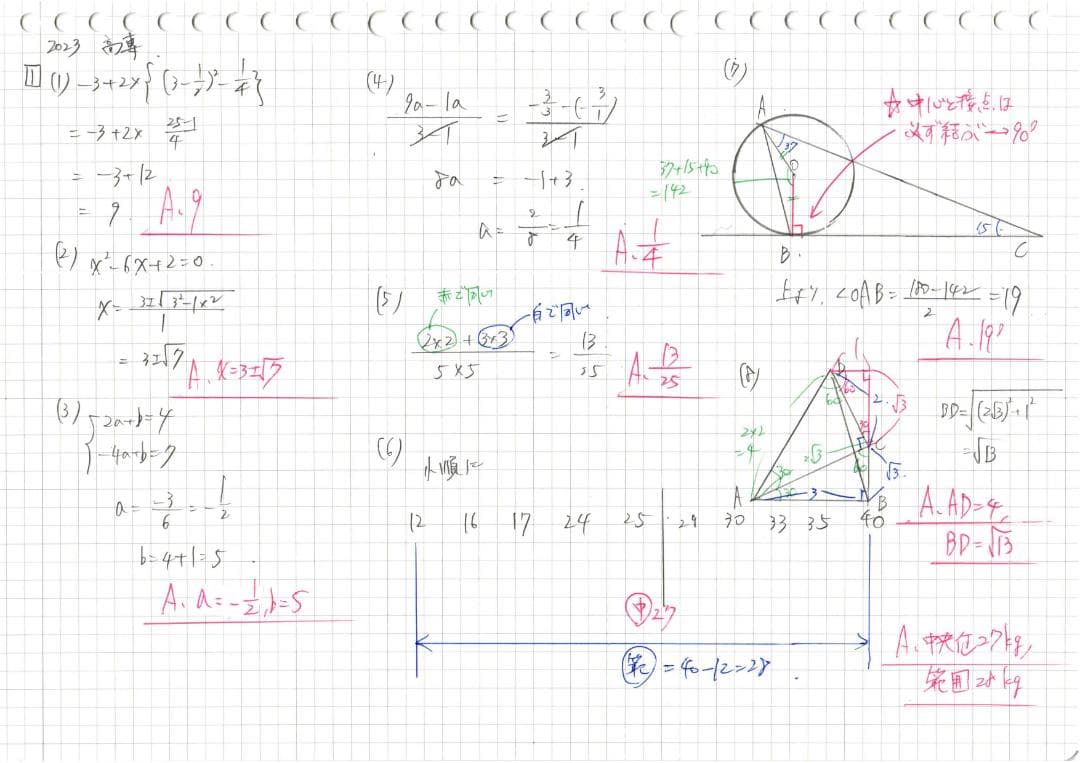 2023 高専
1 (1) -3+2×{(3-1/2)²-1/4}
= -3+2× 25-1/4
= -3+12
= 9 A. 9
(2) x²-6x+2=0.
x= 3±√3²-1×2 / 1
= 3±√7 A. x=3±√7
(3) { 2a+b=4
-4a+b=7
a= -3/6 = -1/2
b=4+1=5
A. a=-1/2, b=5
(4) 9a-1a / 3-1 = -3/3-(-3/1) / 3-1
8a = -1+3.
a= 2/8 = 1/4
A. 1/4
(5) 赤で同い
白で同い
2×2 + 3×3 / 5×5 = 13/25
A. 13/25
(6) 小順に
12 16 17 24 25 29 30 33 35 40
中 27
範 =40-12=28
A. 中央値27kg,
範囲28kg
(7)
A
37
O
B.
C
15
37+15+90
=142
☆中心と接点は
必ず結ぶ→90°
上より, ∠OAB= 180-142 / 2 =19
A. 19°
(8)
D
1
60
60
2.
√3
30
2×2
=4
2√3
C
60
√3.
30
30
A
3
B
BD=√(2√3)²+1²
=√13
A. AD=4,
BD=√13